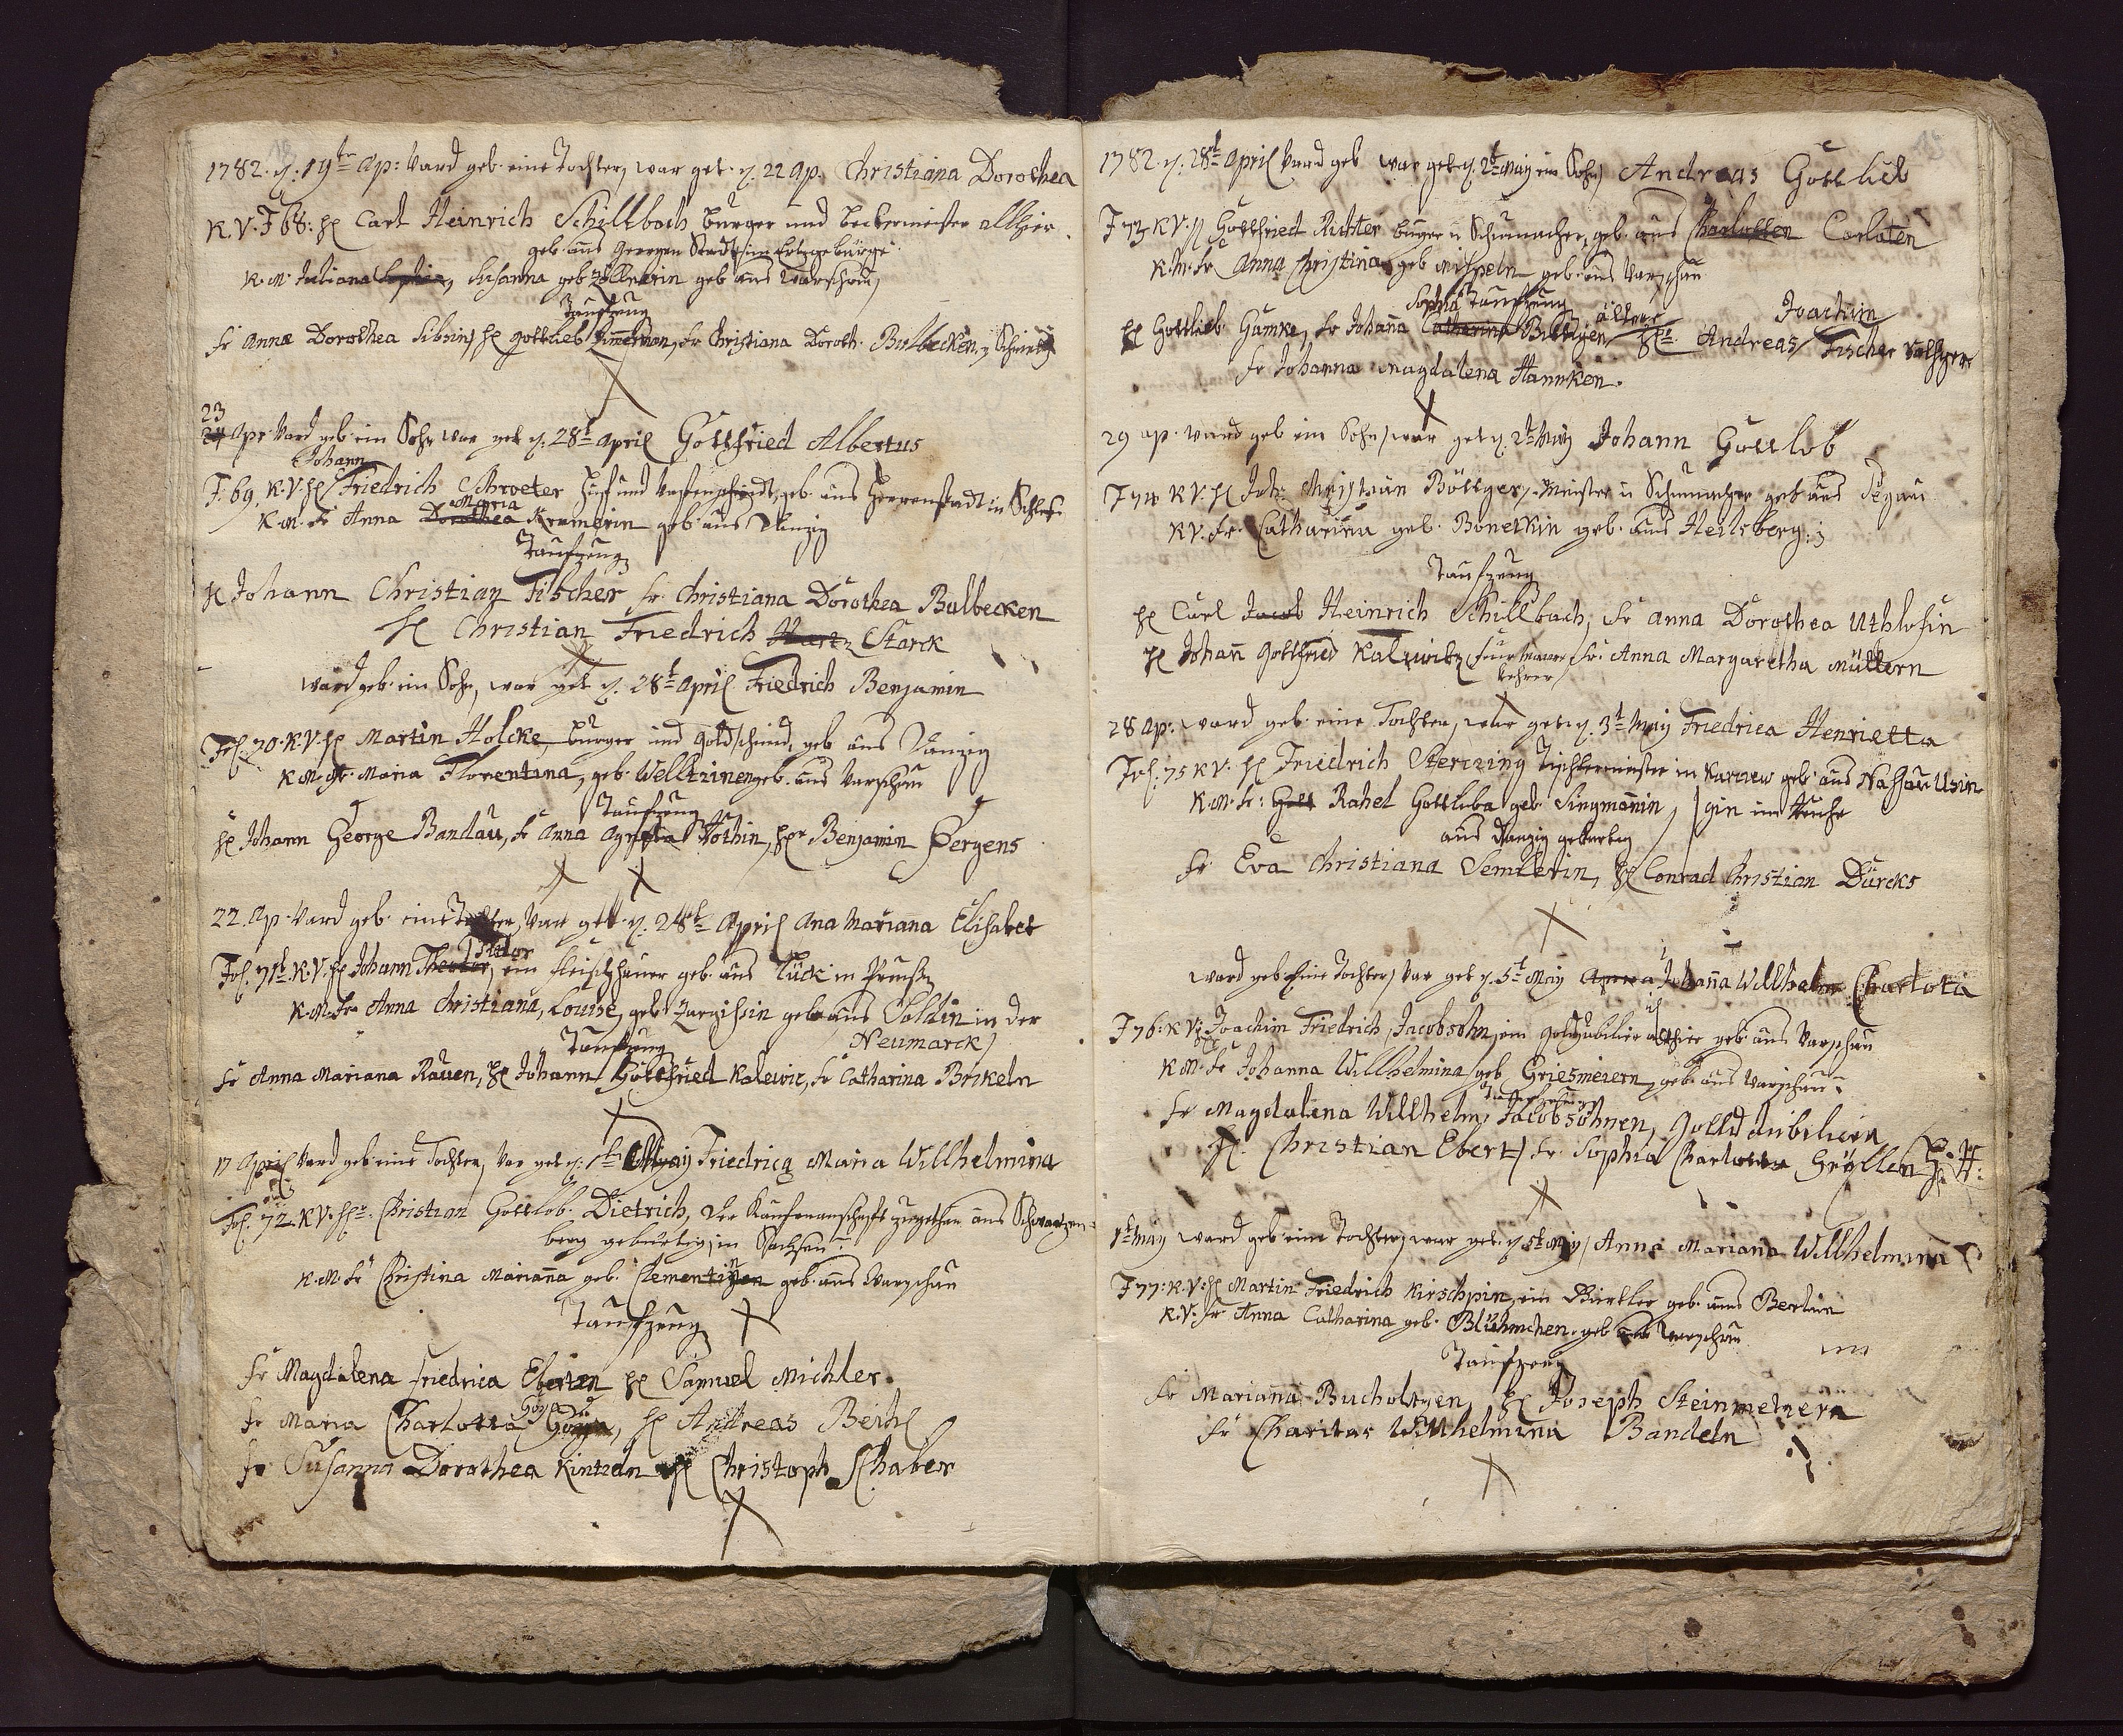 1782. d. 19te Ap: Ward geb. eine Tochter, war get. d. 22 Ap. Christiana Dorothea
K.V. F 68: H Carl Heinrich Schillbach Burger und beckermeister allhier
geb. aus Georgen Stadt im Ertzgebürge
K.M. Juliana Sophia, Susanna geb Zöllnerin geb aus Warschau
Taufzeug
Fr Anna Dorothea Sibrin, H Gottlieb Zimmerman, Fr Christiana Doroth. Bulbecken
23
24 Apr. Ward geb. ein Sohn war get d. 28t April Gottfried Albertus
Johann
F. 69. K.V. H Friedrich Schroeter Huf und Waffenschmidt, geb. aus Herrenstadt in Schles.
Maria
K.M. Fr Anna Dorothea Kramerin geb. aus Danzig
Taufzeug
H Johann Christian Fischer Fr. Christiana Dorothea Bulbecken
H Christian Friedrich Hartz Starck
ward geb. ein Sohn, war get d. 28t April Friedrich Benjamin
Fol. 70. K.V. H Martin Holcke, burger und goldschmid, geb aus Danzig
K.M. Fr. Maria Florentina, geb. Welltzinen geb. aus Warschau
Taufzeug
H Johann George Bandau, Fr Anna Agneta Vothin, Hr Benjamin Bergens
22. Ap. Ward geb. eine Tochter, War get. d. 28t April Ana Mariana Elisabet
Fidor
Fol. 71t. K.V. H Johann Theodor, ein fleischhauer geb. aus Lück in Preußn
K.M. Fr Anna Christiana, Louise, geb Zargissin geb aus Soldin in der
Taufzeug Neumarck
Fr Anna Mariana Rauen, H Johann Gottfried Kalewic, Fr Catharina Brikeln
17 April Ward geb. eine Tochter, War get d. 1t May Friedrica Maria Willhelmina
Fol. 72. K.V. Hr. Christian Gottlob. Dietrich, der Kaufmanschaft zugethan aus Schwartzen-
berg gebürtig, in Sachsen
K.M. Fr Christina Mariana geb. Clementinen geb. aus Warschau
Taufzeug
Fr Magdalena Friedrica Ebertzn H Samuel Michler.
Fr Maria Charlotta, H Andreas Beich
Fr Susanna Dorothea Kintzeln H Christoph Schaber
1782. d. 28t April Ward geb war get d. 2t May ein Sohn Andreas Gottlieb
F 73 K.V. H Gottfried Richter burger u Schumacher, geb. aus Charlotten Carlaten
K.M. Fr Anna Christina geb Mispeln geb. aus Warschau
Sophia Taufzeug ältere Joachim
H Gottlieb Gamke, Fr Johana Catharina Bittigen, Hr. Andreas Fischer
Fr Johanna Magdalena Hannken.
29 ap. ward geb ein Sohn, war get d. 2t May Johann Gottlob
F 74 K.V. H Joh. Christian Böttger, Meister u Schumacher geb aus Segau
K.V. Fr. Catharina geb. Bonetkin geb. aus Heilsberg
Taufzeug
H Carl Jacob Heinrich Schillbach, Fr Anna Dorothea Uthlosin
H Johann Gottfried Kalzwitz, Fr. Anna Margaretha Müllern
28 Ap: ward geb. eine Tochter, war get. d. 3t May Friedrica Henrietta
Fol. 75 K.V. H Friedrich Sterczing Tischlermeister in Karczew geb. aus Nassau Usin-
K.M. Fr: Gott Rahel Gottliba geb Singmanin, gin im Reiche
aus Danzig gebürtig
Fr Eva Christiana Semlerin, H Conrad Christian Dürcks
ward geb. Eine Tochter, War get d. 5t May Anna Johana Willhelm Charlota
F 76: K.V. Joachim Friedrich, Jacobsohn, ein goldjubilier allhier geb. aus Warschau
K.M. Fr Johanna Willhelmina geb Griesmeiern, geb. aus Warschau
Taufzeugen
Fr Magdalena Willhelm, Jacobsohnen, Golld Jubilirin
H. Christian Ebert, Fr. Sophia Charlotta Gröllen
1t May ward geb eine Tochter, war get. d 5t May, Anna Mariana Willhelmina
F 77: K.V. H Martin Friedrich Kirschpin, ein Gürtler geb. aus Berlin
K.V. Fr Anna Catharina geb. Blühmchen. geb aus Warschau
Taufzeug
Fr Mariana Bucholtzen, H Joseph Steinmetzern
Fr Charitas Willhelmina Bandeln